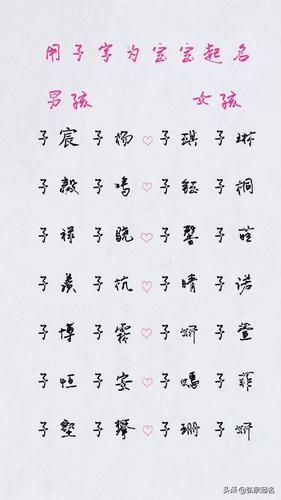 用子字为宝宝起名
男孩 女孩
子宸 子杨 ♡ 子琪 子琳
子毅 子鸣 ♡ 子钰 子桐
子祥 子骁 ♡ 子馨 子萱
子羡 子杭 ♡ 子晴 子诺
子博 子霖 ♡ 子妍 子萱
子恒 子安 ♡ 子嫣 子菲
子 子攀 ♡ 子珊 子妍
头条 @弘宗起名